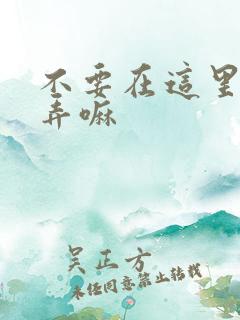 不要在這里
弄嘛
吴正方
未经同意禁止转载